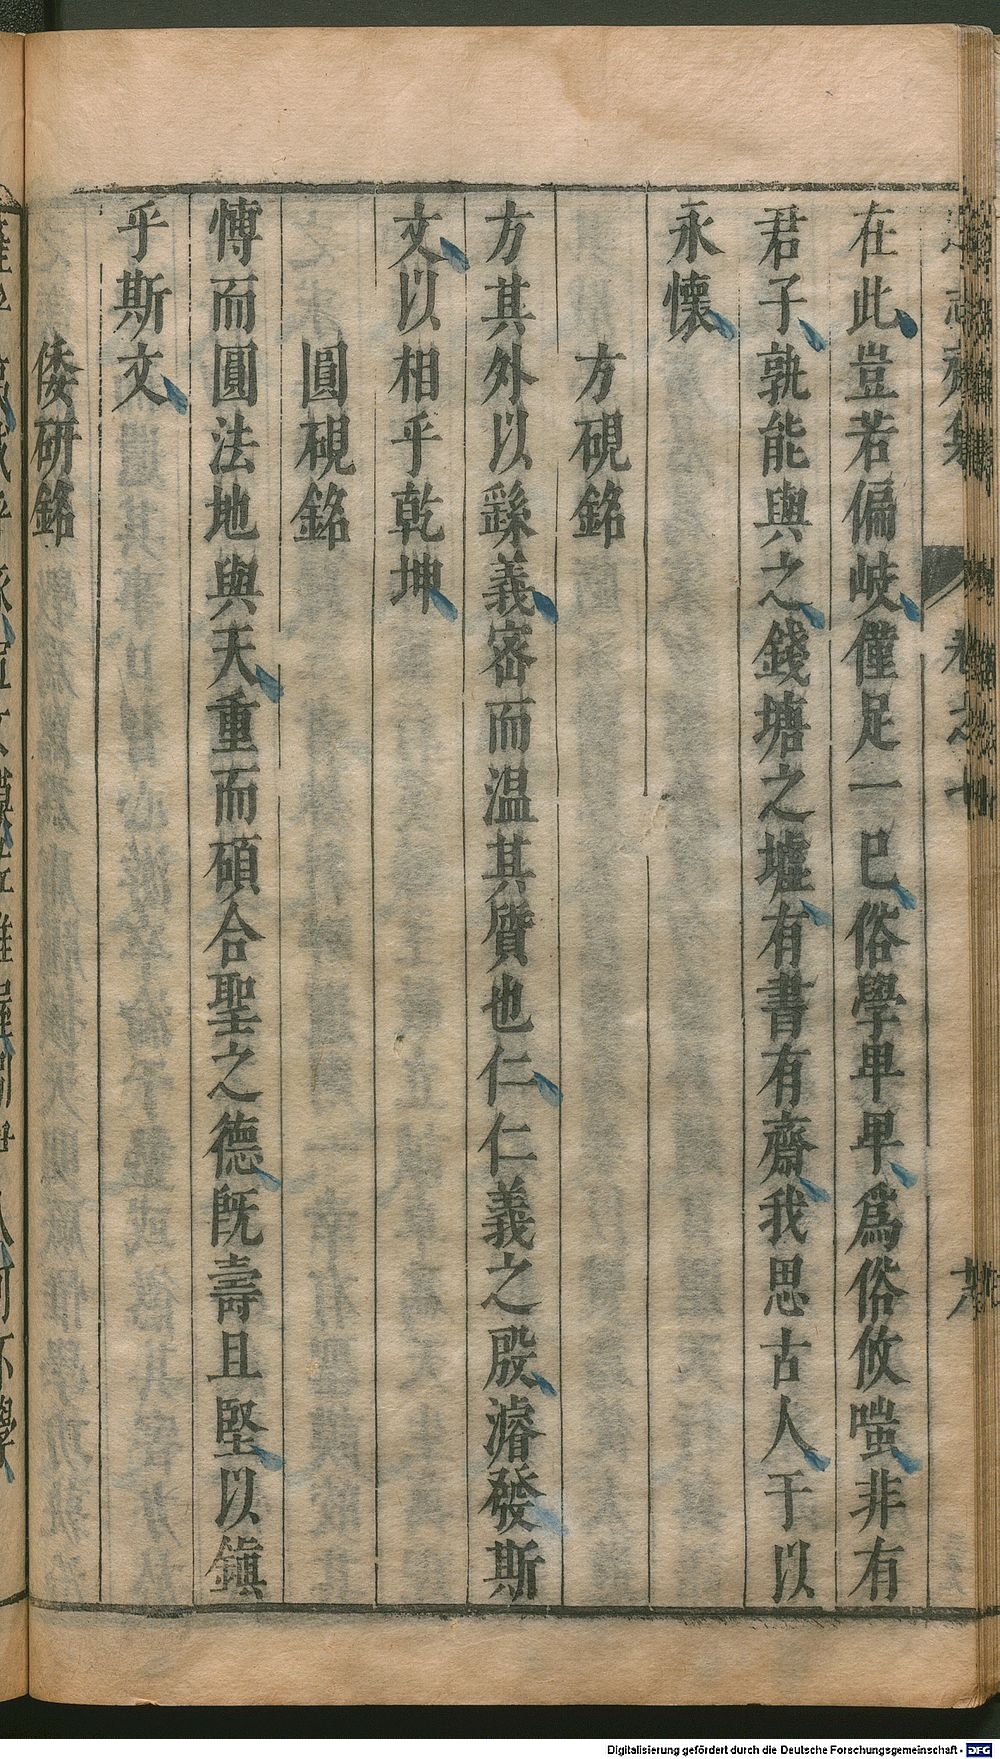 在此豈若偏岐僅足一已俗學卑卑爲俗攸嗤非有
君子孰能與之錢塘之墟有書有齋我思古人于以
永懷
方硯銘
方其外以繇義密而温其質也仁仁義之殷濬發斯
文以相乎乾坤
圓硯銘
愽而圓法地與天重而碩合聖之德旣壽且堅以鎭
乎斯文
倭研銘
Digitalisierung gefördert durch die Deutsche Forschungsgemeinschaft - DFG